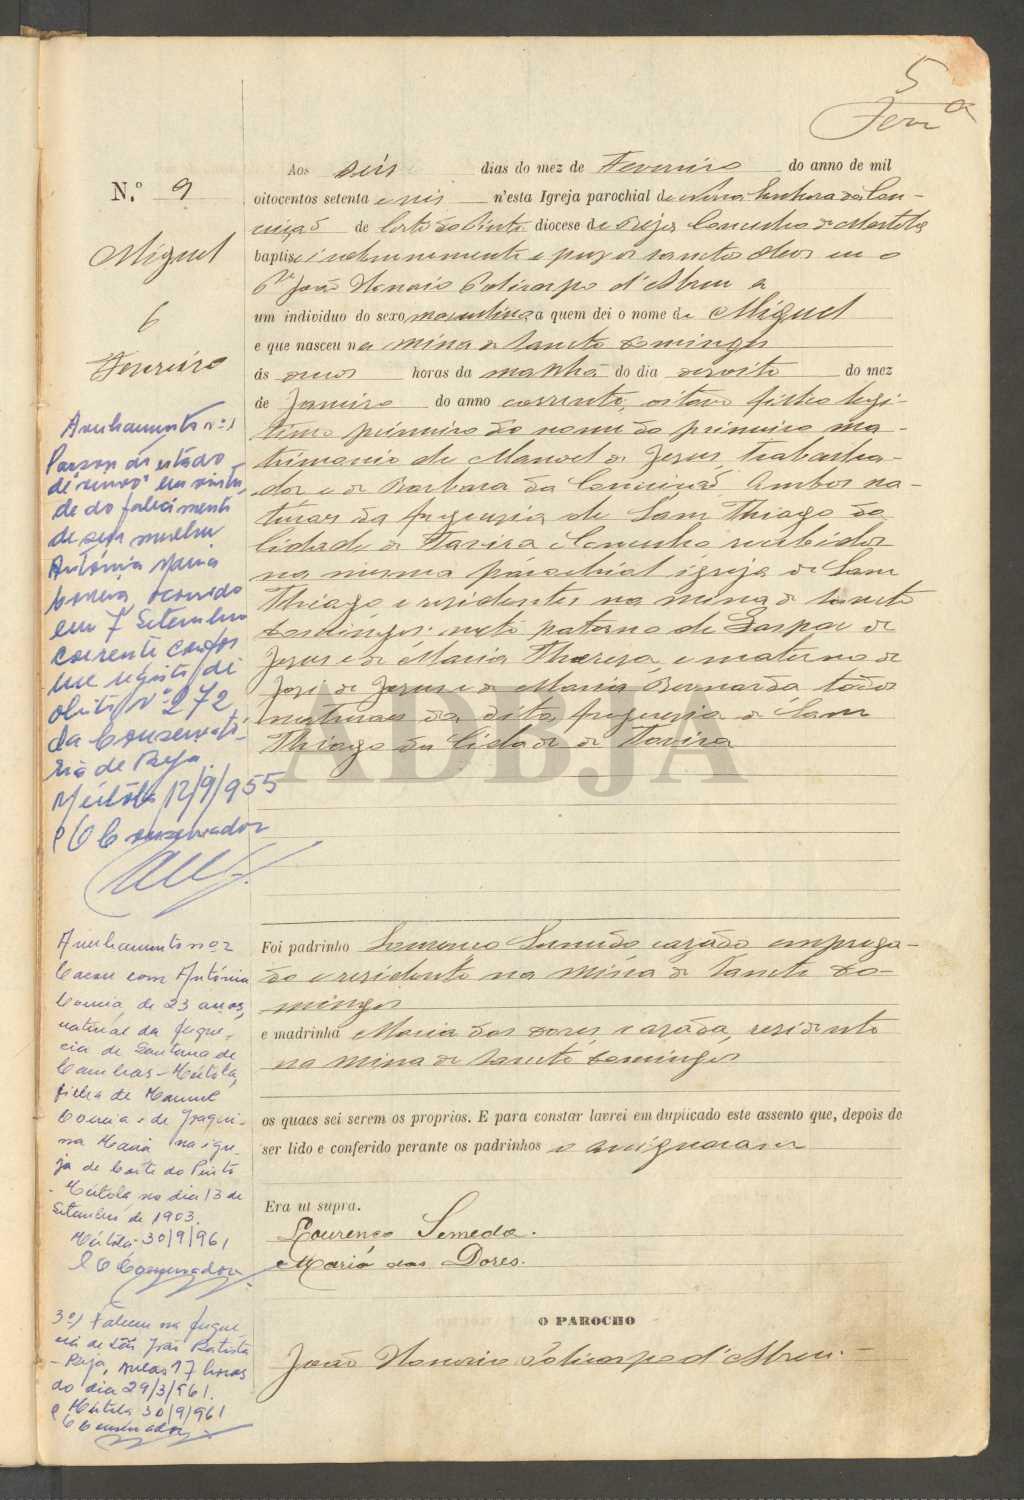 5
N.º 9
Miguel
6
Fevereiro
Aos seis dias do mez de Fevereiro do anno de mil
oitocentos setenta e seis n'esta Igreja parochial de Nossa Senhora da Con-
ceição de Corte do Pinto diocese de Beja Concelho de Mertola
baptisei solemnemente e puz os sanctos oleos eu o
P.e João Honorio Policarpo d'Abreu a
um individuo do sexo masculino a quem dei o nome de Miguel
e que nasceu na mina de Sancto Domingos
ás horas da manhã do dia desoito do mez
de Janeiro do anno corrente, oitavo filho legi-
timo primeiro do nome do primeiro ma-
trimonio de Manoel de Jesus, trabalha-
dor e de Barbara da Conceição Ambos na-
turaes da freguesia de Sam Thiago da
Cidade de Tavira e Concelho recebidos
na mesma parochial igreja de Sam
Thiago e residentes na mina de Sancto
Domingos: neto paterno de Gaspar de
Jesus e de Maria Thereza, e materno de
José de Jesus e de Maria Bernarda todos
naturaes da dita freguesia de Sam
Thiago da Cidade de Tavira
ADBJA
Foi padrinho Lourenço Semedo casado emprega-
do e residente na mina de Sancto Do-
mingos
e madrinha Maria das Dores, casada, residente
na mina de Sancto Domingos
os quaes sei serem os proprios. E para constar lavrei em duplicado este assento que, depois de
ser lido e conferido perante os padrinhos o assignaram
Era ut supra.
Lourenço Semedo.
Maria das Dores.
O PAROCHO
João Honorio Policarpo d'Abreu.
Averbamento nº 1
Passou ao estado
de viuvo em virtu-
de do falecimento
de sua mulher
Antónia Maria
Correia, ocorrido
em 7 Setembro
corrente confor
me registo de
obito nº 272
da Conservató-
ria de Beja.
Mértola 12/9/955
O Conservador
Averbamento nº 2
Casou com Antónia
Correia, de 23 anos,
natural da fregue-
sia de Santana de
Cambas - Mértola,
filha de Manuel
Correia e de Joaqui-
na Maria na igre-
ja de Corte do Pinto
- Mértola no dia 13 de
Setembro de 1903.
Mértola 30/9/961
O Conservador
3º) Faleceu na fregue-
sia de São João Batista
- Beja, pelas 17 horas
do dia 29/3/961.
Mértola 30/9/961
O Conservador